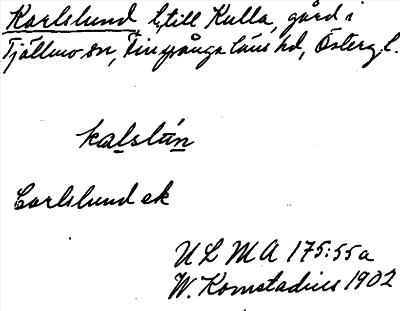 Karlslund l, till Kulla, gård i
Tjällmo sn, Finspånga läns hd, Östergl.
kalslún
Carlslund ek
ULMA 175:55a
W. Komstadius 1902